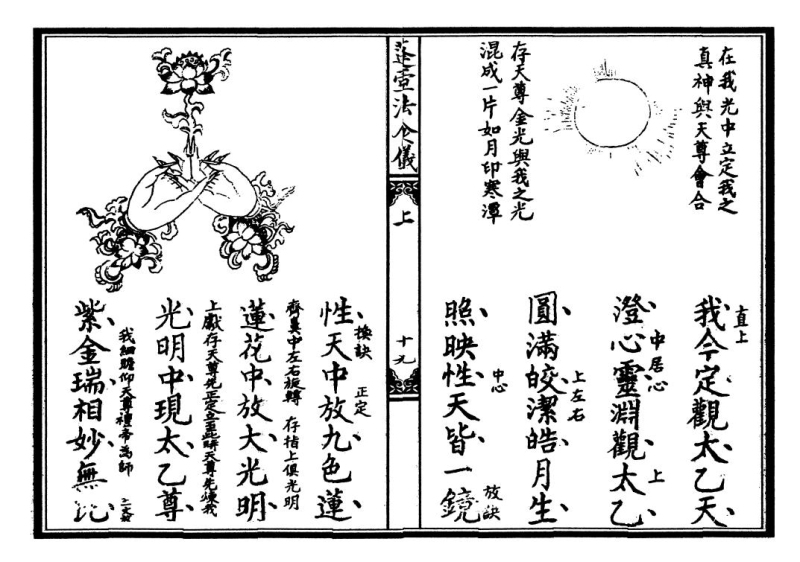 在我光中立定我之
真神與天尊會合
存天尊金光與我之光
混成一片如月印寒潭
直上
我今定觀太乙天
中居心
澄心靈淵觀太乙
上
圓滿皎潔皓月生
上左右
照映性天皆一鏡
中心
放訣
蓬壺法食儀
上
十九
性天中放九色蓮
換訣
正定
齊真中左右旋轉
存指上俱光明
蓮花中放大光明
上獻存天尊先正定
天尊先煉我
光明中現太乙尊
我細瞻仰天尊禮帝為師
紫金瑞相妙無比